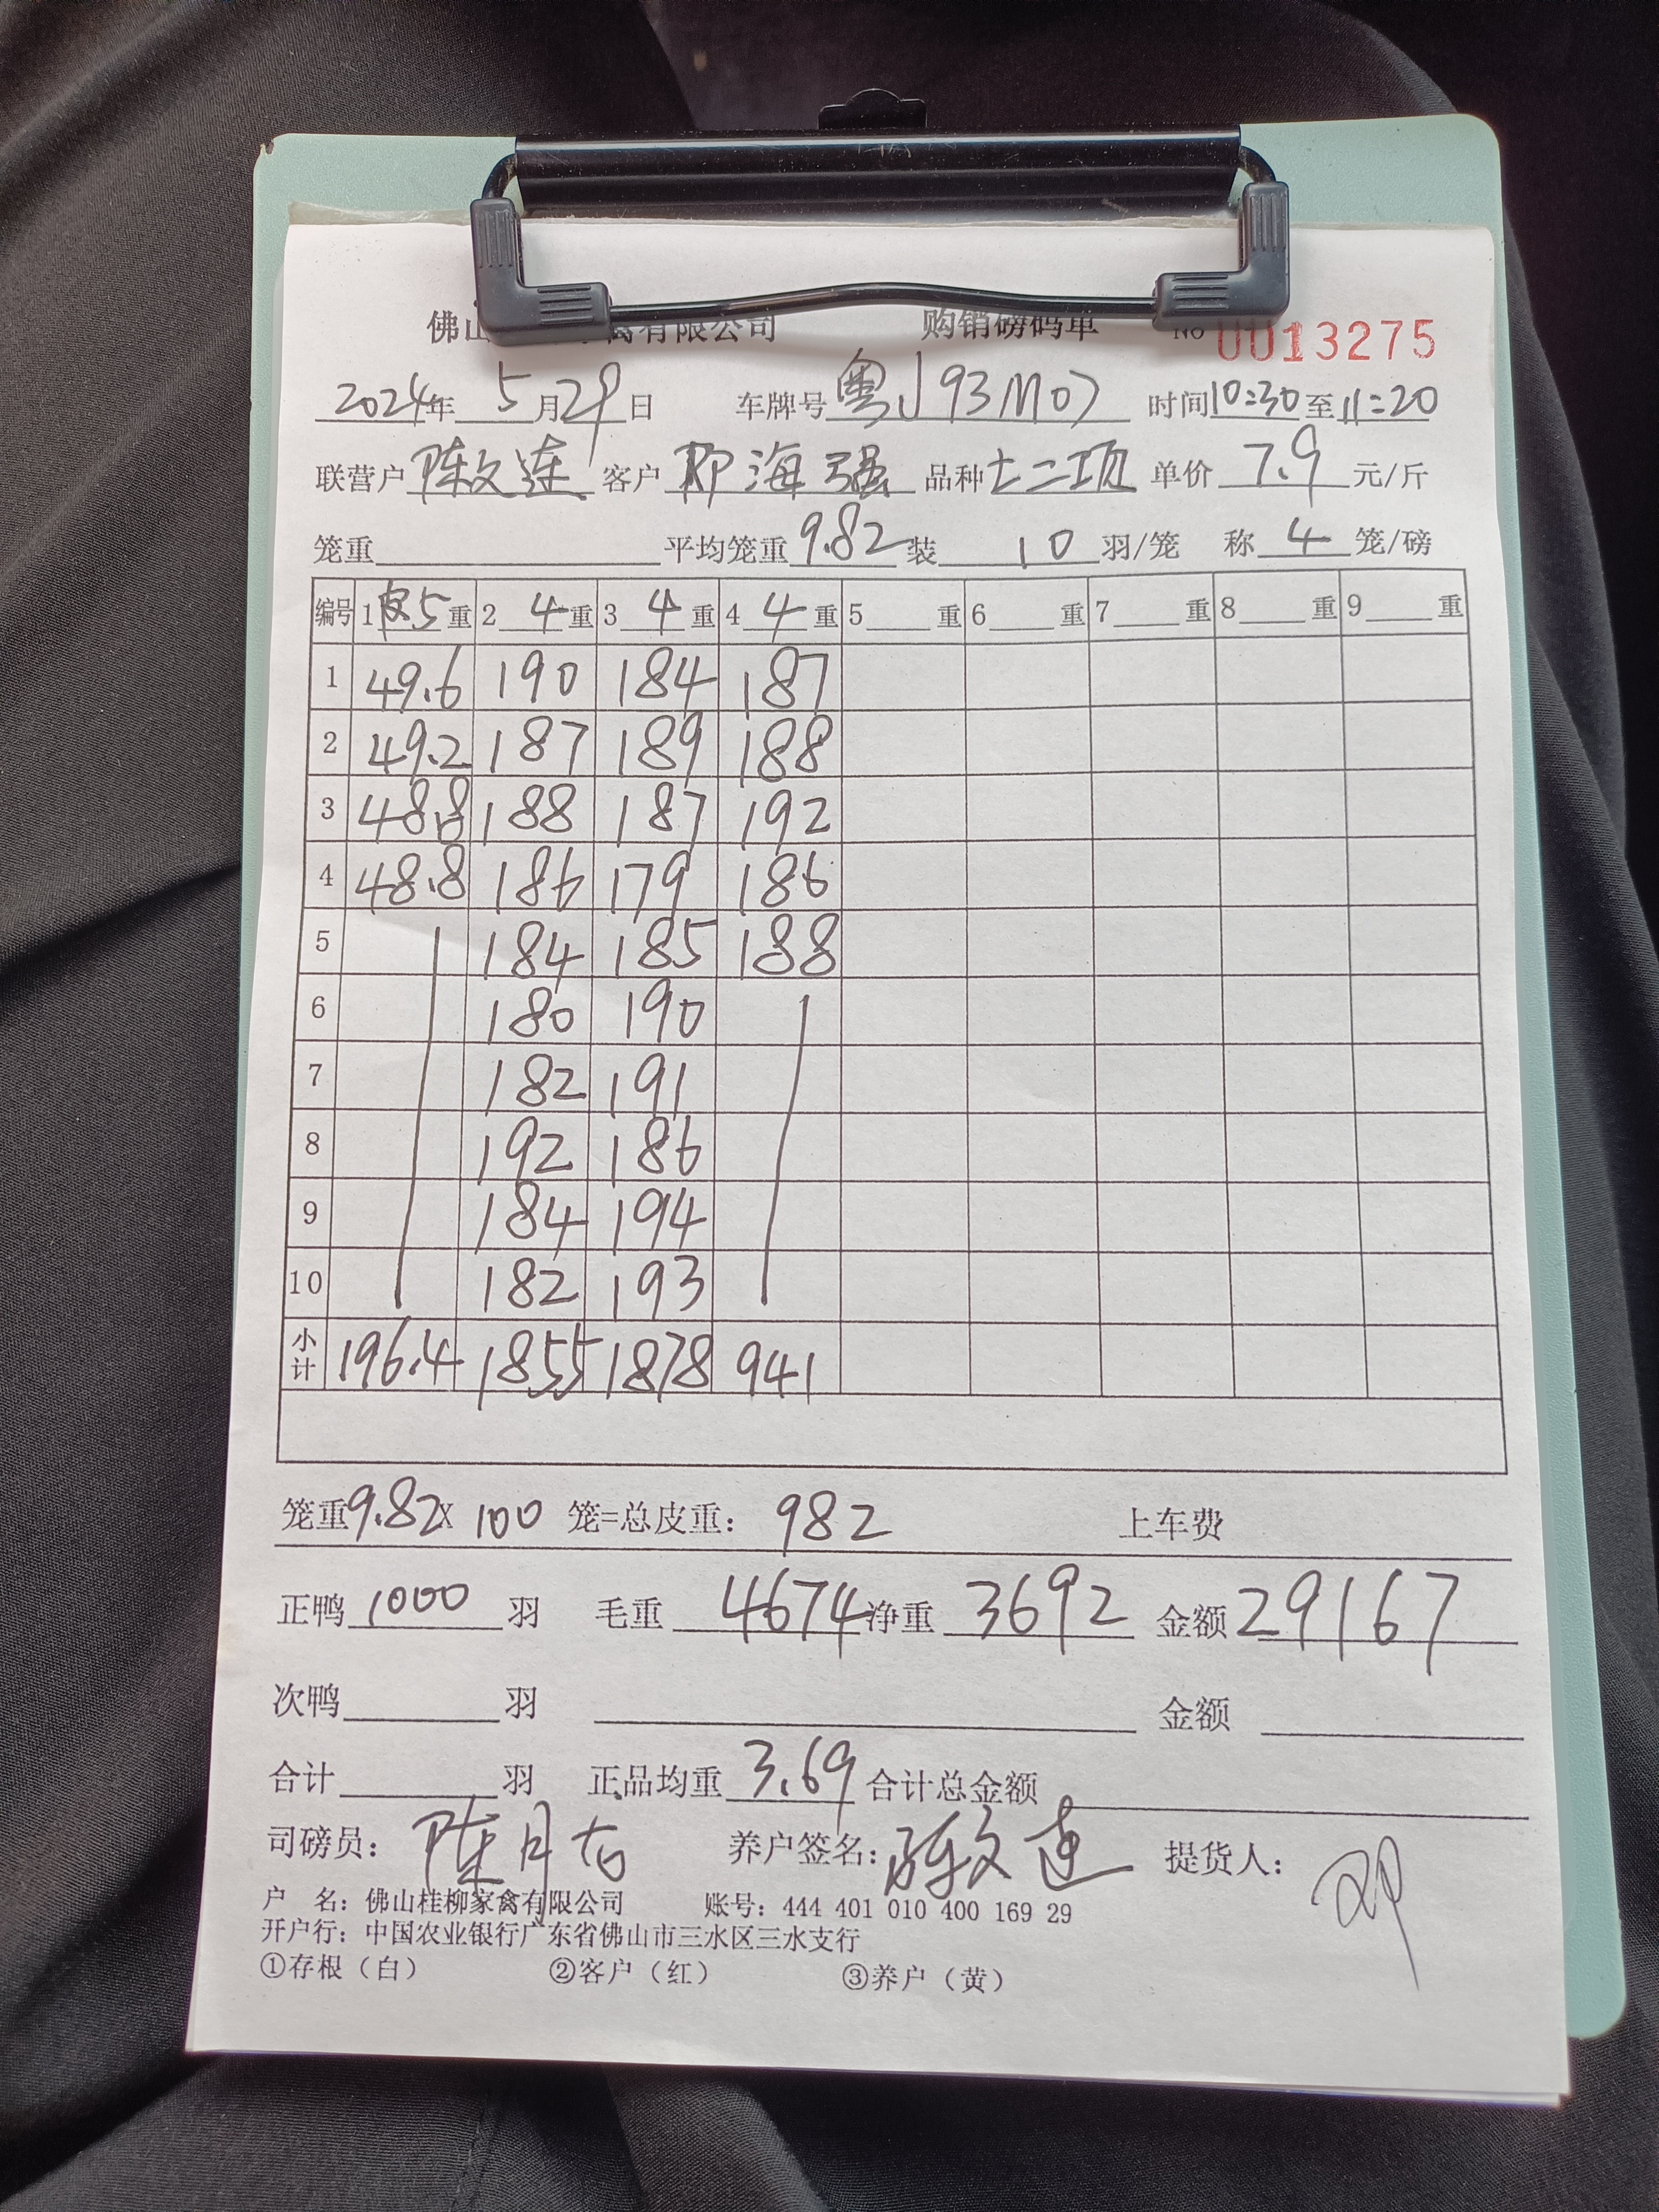 佛山 禽有限公司 购销磅码单 No 0013275
2024年 5月29日 车牌号 粤J93M07 时间10:30至11:20
联营户 陈文连 客户 海强 品种 七二项 单价 7.9 元/斤
笼重 平均笼重 9.82 装 10 羽/笼 称 4 笼/磅
编号 1 皮5 重 2 4 重 3 4 重 4 4 重 5 重 6 重 7 重 8 重 9 重
1 49.6 190 184 187
2 49.2 187 189 188
3 48.8 188 187 192
4 48.8 186 179 186
5 184 185 188
6 180 190
7 182 191
8 192 186
9 184 194
10 182 193
小计 196.4 1855 1878 941
笼重9.82X 100 笼=总皮重: 982 上车费
正鸭 1000 羽 毛重 4674 净重 3692 金额 29167
次鸭 羽 金额
合计 羽 正品均重 3.69 合计总金额
司磅员: 陈月 养户签名: 陈文连 提货人:
户 名: 佛山桂柳家禽有限公司 账号: 444 401 010 400 169 29
开户行: 中国农业银行广东省佛山市三水区三水支行
①存根（白） ②客户（红） ③养户（黄）